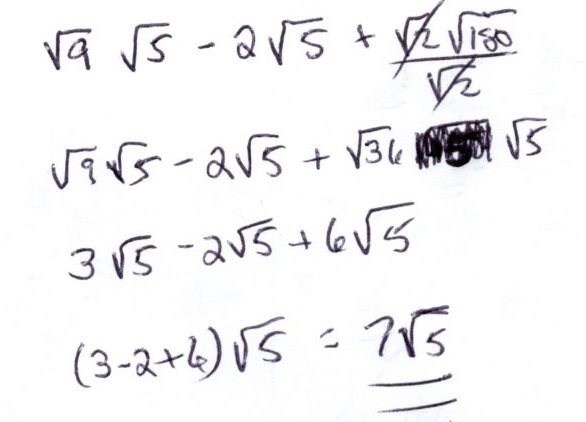 √9 √5 - 2√5 + √2 √180 / √2
√9 √5 - 2√5 + √36 √5
3√5 - 2√5 + 6√5
(3-2+6)√5 = 7√5